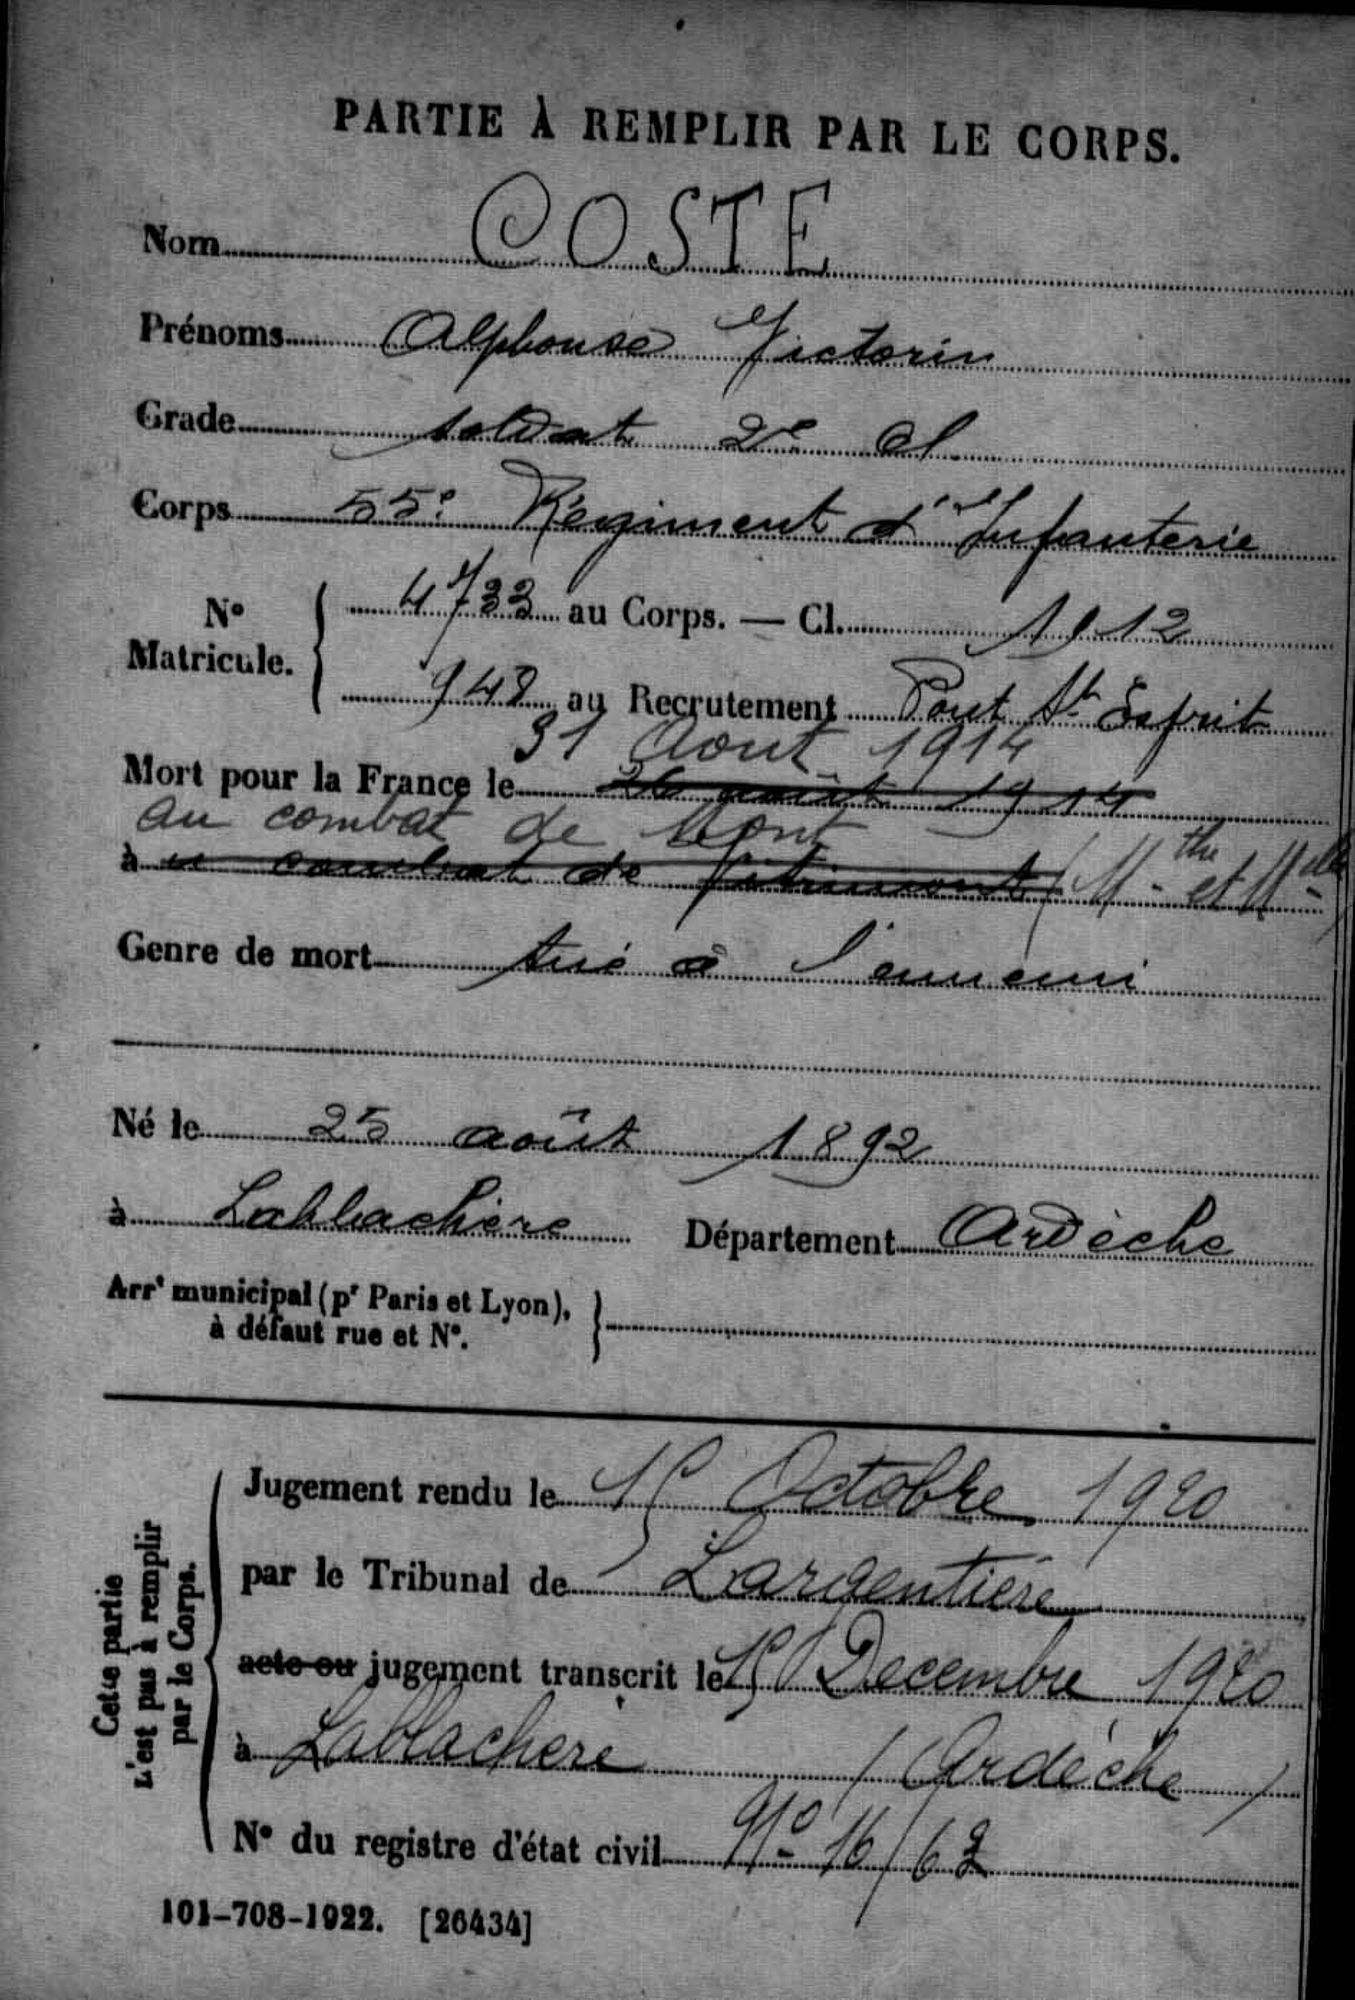 PARTIE À REMPLIR PAR LE CORPS.
Nom COSTE
Prénoms Alphonse Victorin
Grade soldat 2e cl
Corps 55e Régiment d'Infanterie
No Matricule. 4733 au Corps. — Cl. 1912
948 au Recrutement Pont St Esprit
31 Aout 1914
Mort pour la France le 26 août 1914
au combat de Mont
à u combat de Vitrimont (Mthe et Mlle)
Genre de mort tué à l'ennemi
Né le 25 août 1892
à Lablachère Département Ardèche
Arrt municipal (pr Paris et Lyon),
à défaut rue et No.
Cette partie
n'est pas à remplir
par le Corps.
Jugement rendu le 15 Octobre 1920
par le Tribunal de Largentière
acte ou jugement transcrit le 15 Decembre 1920
à Lablachere (Ardèche)
No du registre d'état civil No 16/62
101-708-1922. [26434]